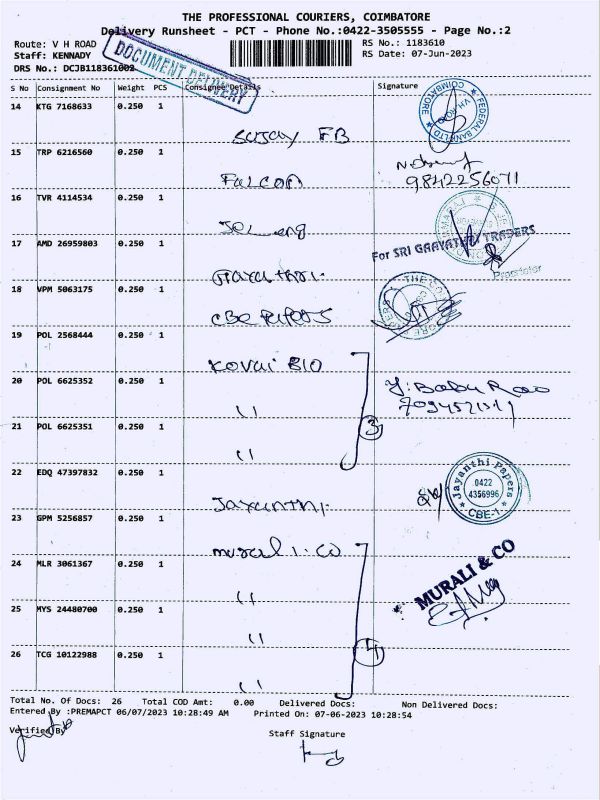 THE PROFESSIONAL COURIERS, COIMBATORE
Delivery Runsheet - PCT - Phone No.:0422-3505555 - Page No.:2
Route: V H ROAD
RS No.: 1183610
Staff: KENNADY
RS Date: 07-Jun-2023
DRS No.: DCJB118361002
DOCUMENT DELIVERY
S No Consignment No Weight PCS Consignee Details Signature
14 KTG 7168633 0.250 1
FEDERAL BANK LTD
COIMBATORE
Sujay FB
15 TRP 6216560 0.250 1
Falcon
9842256071
16 TVR 4114534 0.250 1
17 AMD 26959803 0.250 1
For SRI GAAYATHRI TRADERS
Proprietor
Gayathri.
18 VPM 5063175 0.250 1
CBE Papers
19 POL 2568444 0.250 1
Kovai BIO
20 POL 6625352 0.250 1
Y. Babu Rao
"
3
21 POL 6625351 0.250 1
"
22 EDQ 47397832 0.250 1
Jayanthi Papers
0422
4356996
CBE-1
Jayanthi.
23 GPM 5256857 0.250 1
murali. co
24 MLR 3061367 0.250 1
MURALI & CO
"
25 MYS 24480700 0.250 1
"
26 TCG 10122988 0.250 1
4
"
Total No. Of Docs: 26 Total COD Amt: 0.00 Delivered Docs: Non Delivered Docs:
Entered By :PREMAPCT 06/07/2023 10:28:49 AM Printed On: 07-06-2023 10:28:54
Verified By
Staff Signature